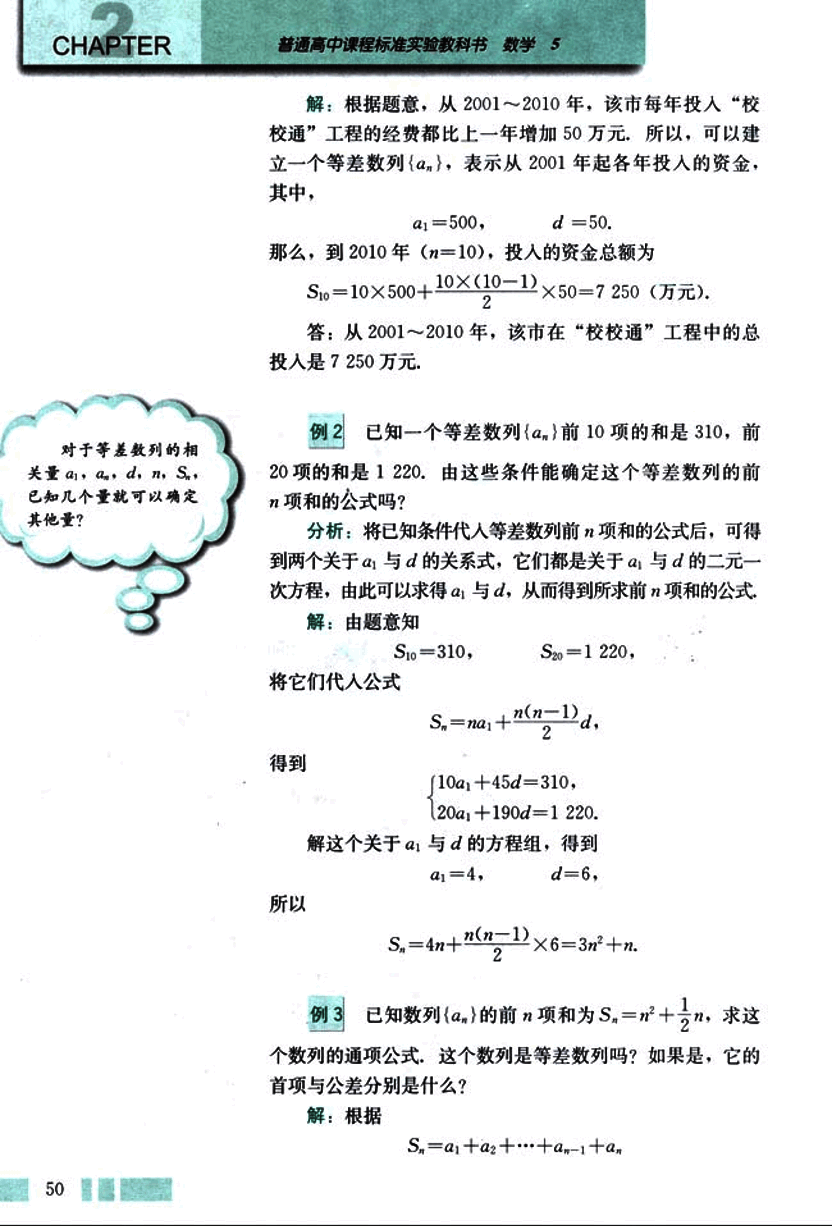 CHAPTER 2
普通高中课程标准实验教科书 数学 5
解：根据题意，从 2001～2010 年，该市每年投入“校
校通”工程的经费都比上一年增加 50 万元. 所以，可以建
立一个等差数列{aₙ}，表示从 2001 年起各年投入的资金，
其中，
a₁=500， d =50.
那么，到 2010 年（n=10），投入的资金总额为
S₁₀=10×500+\frac{10×(10-1)}{2}×50=7 250（万元）.
答：从 2001～2010 年，该市在“校校通”工程中的总
投入是 7 250 万元.
对于等差数列的相
关量 a₁，aₙ，d，n，Sₙ，
已知几个量就可以确定
其他量？
例2 已知一个等差数列{aₙ}前 10 项的和是 310，前
20 项的和是 1 220. 由这些条件能确定这个等差数列的前
n 项和的公式吗？
分析：将已知条件代入等差数列前 n 项和的公式后，可得
到两个关于 a₁ 与 d 的关系式，它们都是关于 a₁ 与 d 的二元一
次方程，由此可以求得 a₁ 与 d，从而得到所求前 n 项和的公式.
解：由题意知
S₁₀=310， S₂₀=1 220，
将它们代入公式
Sₙ=na₁+\frac{n(n-1)}{2}d，
得到
{10a₁+45d=310，
20a₁+190d=1 220.
解这个关于 a₁ 与 d 的方程组，得到
a₁=4， d=6，
所以
Sₙ=4n+\frac{n(n-1)}{2}×6=3n²+n.
例3 已知数列{aₙ}的前 n 项和为 Sₙ=n²+\frac{1}{2}n，求这
个数列的通项公式. 这个数列是等差数列吗？如果是，它的
首项与公差分别是什么？
解：根据
Sₙ=a₁+a₂+⋯+aₙ₋₁+aₙ
50